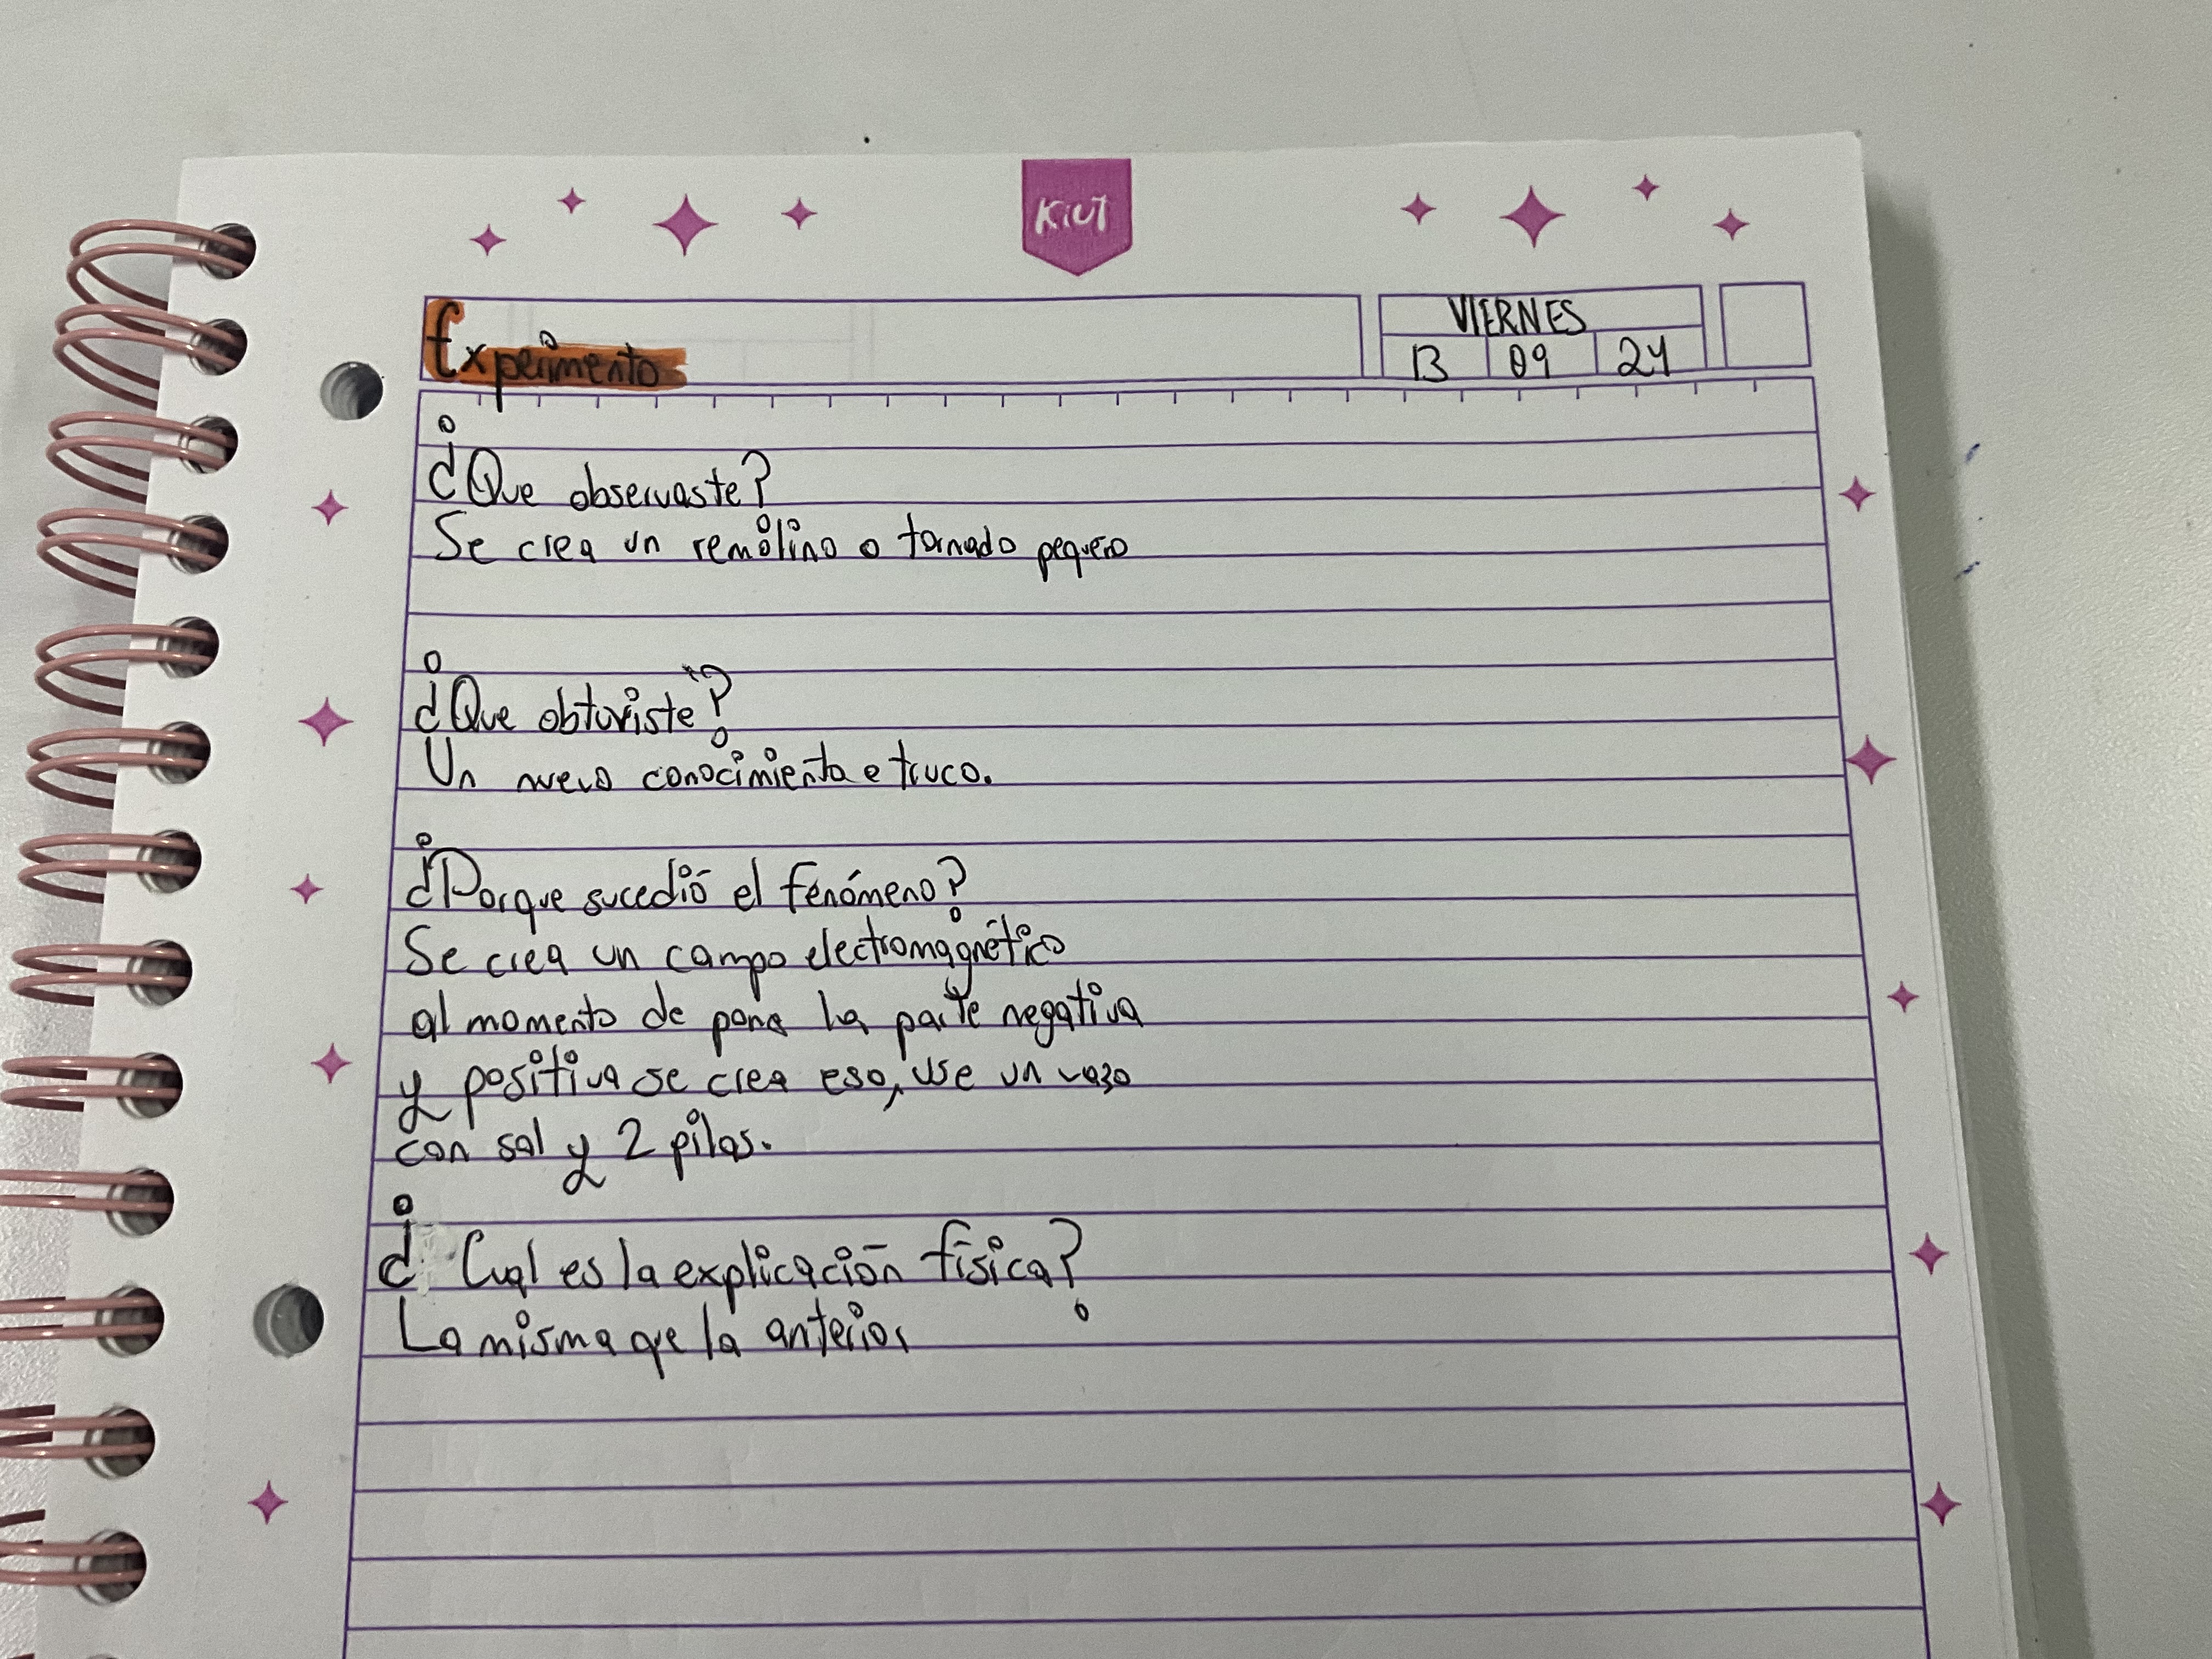 KiUT
Experimento
VIERNES
13 09 24
¿Que observaste?
Se crea un remolino o tornado pequeño
¿Que obtuviste?
Un nuevo conocimiento e truco.
¿Porque sucedió el fenómeno?
Se crea un campo electromagnético
al momento de pone la parte negativa
y positiva se crea eso, use un vazo
con sal y 2 pilas.
¿Cual es la explicación física?
La misma que la anterior